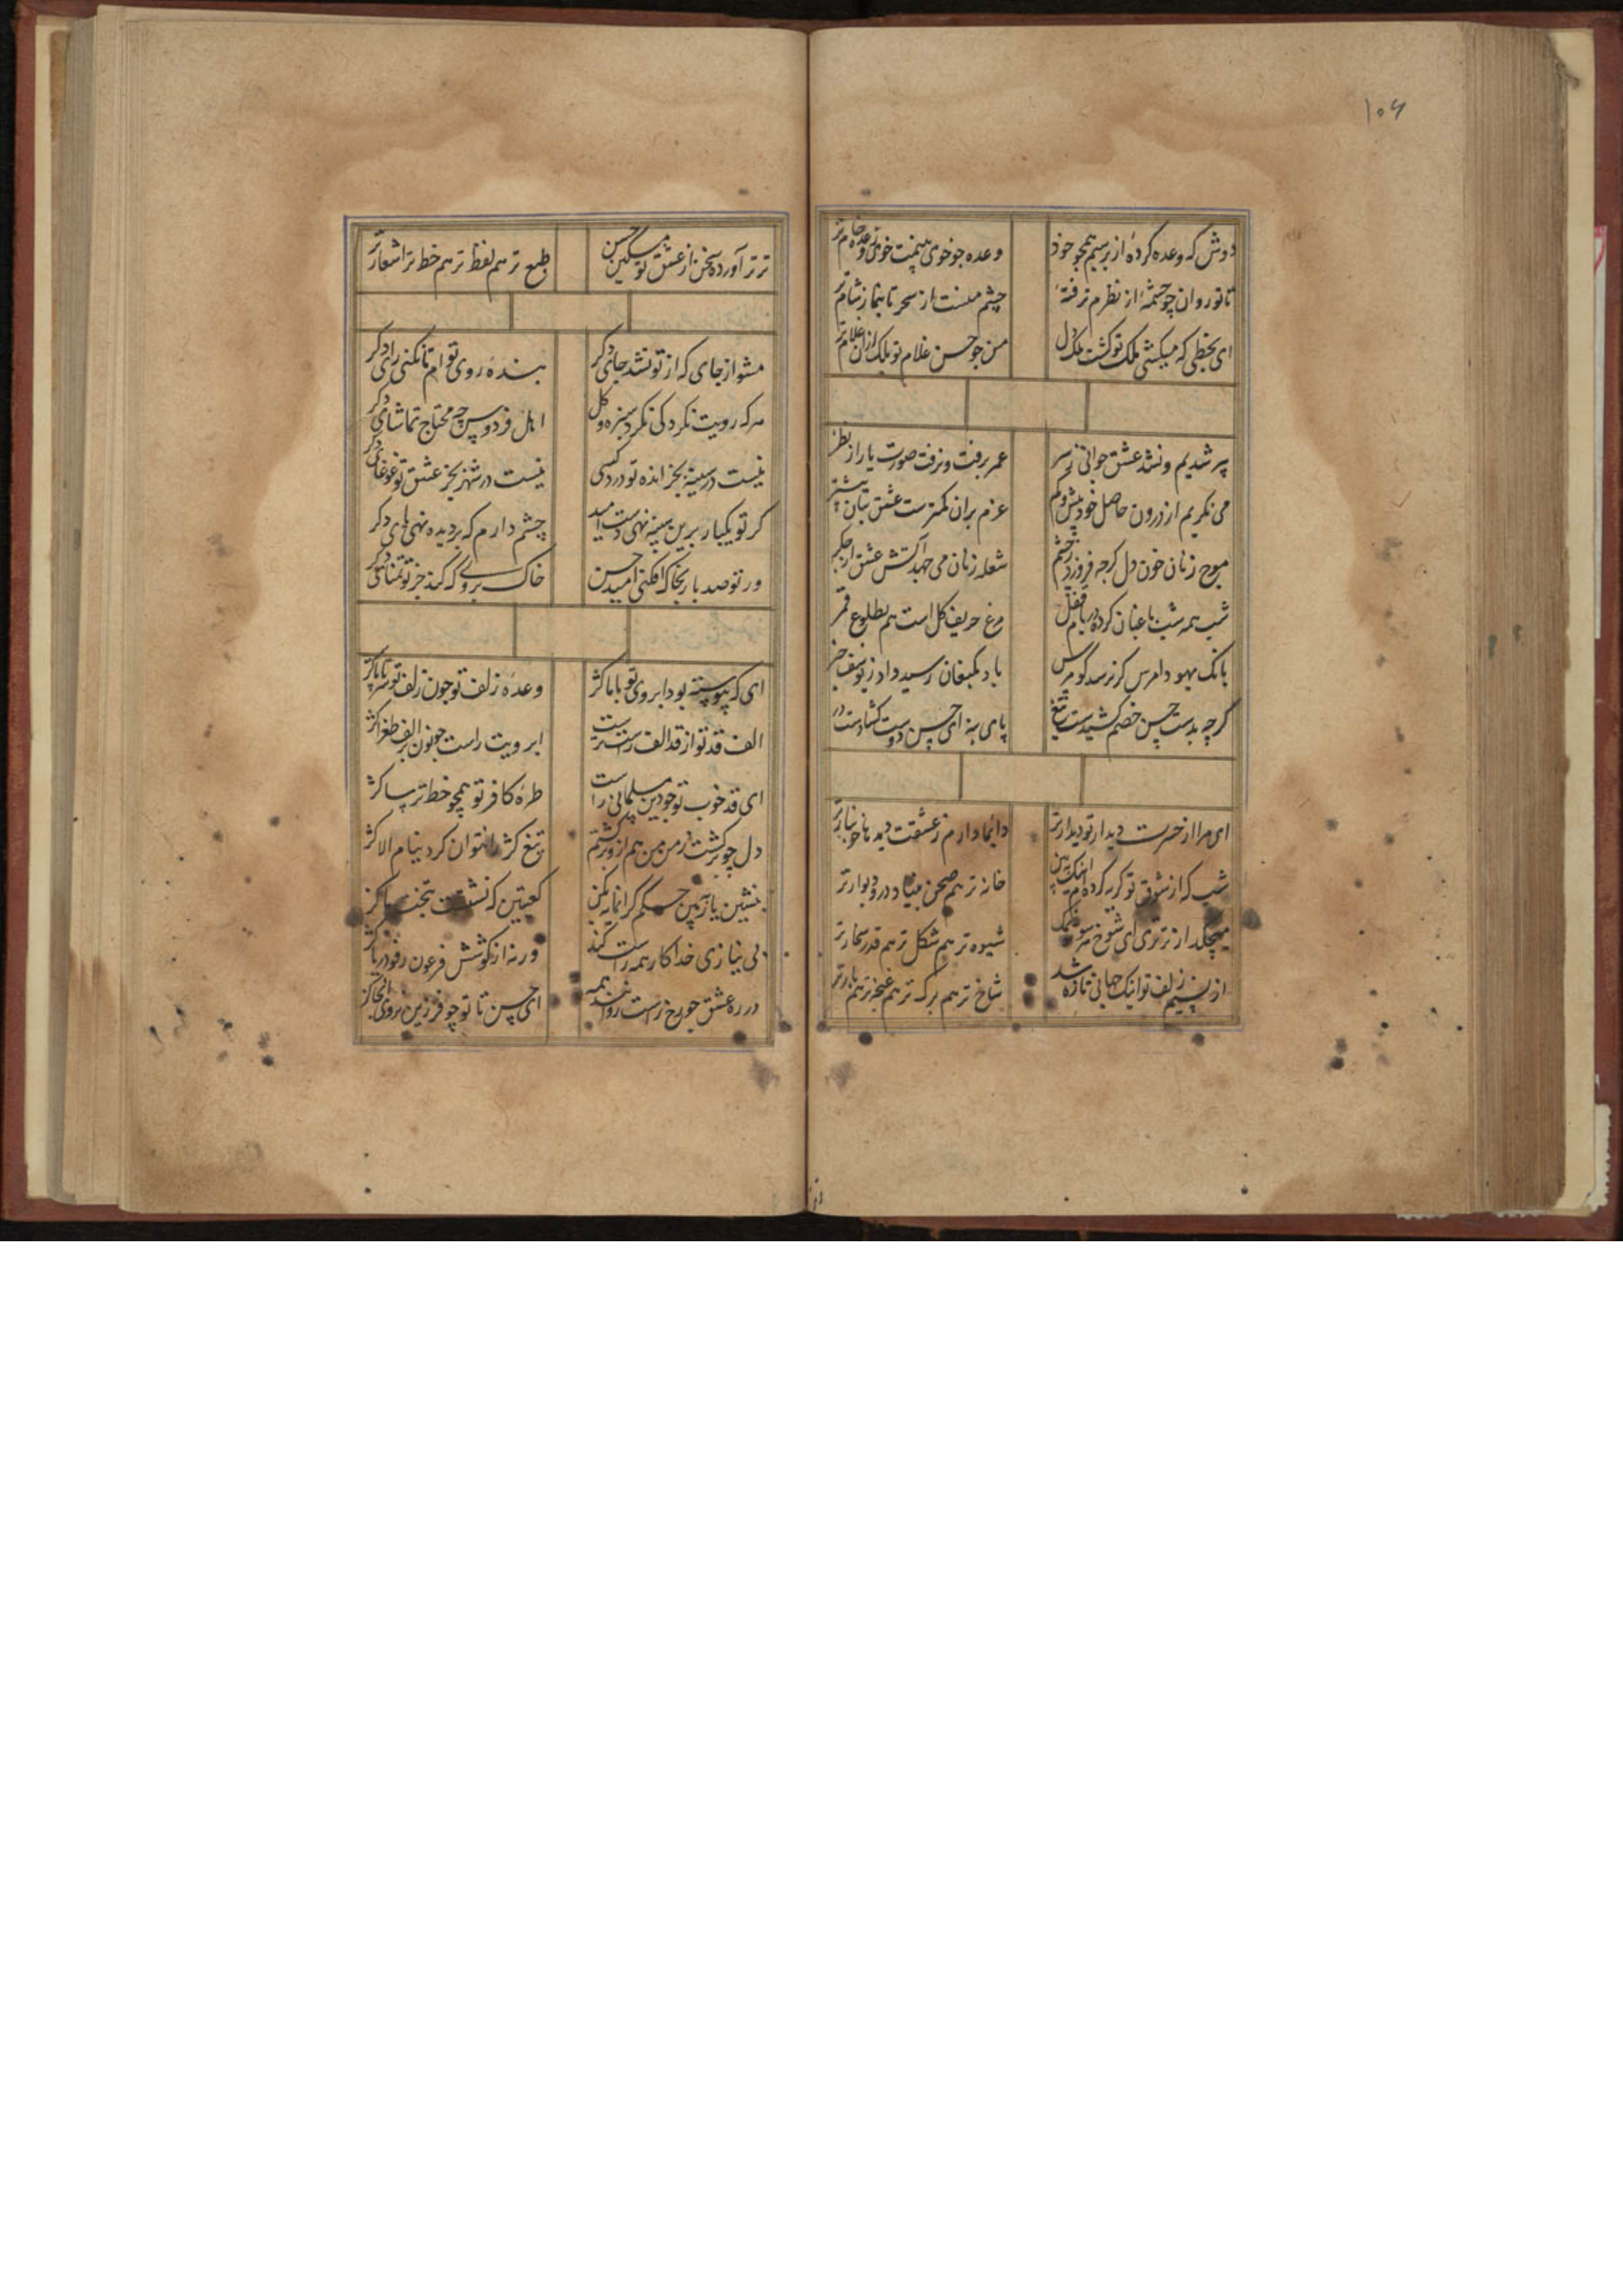 ۱۰۶
دوش که وعده کردهٔ از بر سیم همچو خود وعده چو خوی خام تر
تا تو روان چو چشمهٔ از نظرم برفتهٔ چشم منست از سحر تا بنماز شام تر
ای بخطی که میکشی ملک تو گشت ملک دل من چو حسن غلام تو بلک ازان غلام تر
پیر شدیم و نشد عشق جوانی ز سر عمر برفت و نرفت صورت یار از نظر
می نکریم از درون حاصل خود بیش و کم عزم بران کمترست عشق بتان بیشتر
موج زنان خون دل کرچه فرو زد ز چشم شعله زنان می جهد آتش عشق از جکر
شب همه شب باغبان کرده در باغ قفل مرغ حریف کل است هم بطلوع قمر
بانک یهودا مرس کر نرسد کو مرس باد بکنعان رسید داد ز یوسف خبر
کرچه بدست حسن خصم کشیدست تیغ پای بنه ای حسن دوست کشادست در
ای مرا از حسرت دیدار تو دیدار تر دائما دارم ز عشقت دیده خونبار تر
شب که از شوق تو کریه کرده ام اینک ببین خانه تر هم صحن بنیاد و در و دیوار تر
میچکد از تری ای شوخ نمک شیوه تر هم شکل تر هم قد تر
از نسیم زلف تو اینک جهانی تازه شد شاخ تر هم برک تر هم غنچه تر هم بار تر
تر تر آورده سخن از عشق تو مسکین حسن طبع تر هم لفظ تر هم خط تر اشعار تر
مشو از جای که از تو نشد جای دکر بندهٔ روی تو ام تا نکنی رای دکر
هرکه رویت نکرد کی نکرد سبزه و کل اهل فردوس چه محتاج تماشای دکر
نیست در سینه بجز انده تو درد کسی نیست در شهر بجز عشق تو غوغای دکر
کر تو یکبار برین سینه نهی دست امید چشم دارم که بر دیده نهی پای دکر
ور تو صد بار بخاک افکنی امید حسن خاک بر وی که کند جز تو تمنای دکر
ای که پیوسته بود ابروی تو با ما کژ وعدهٔ زلف تو چون زلف تو سر تا پا کژ
الف قد تو از قد الف راست ترست ابرویت راست چو نون بر الف طغرا کژ
ای قد خوب تو چو دین مسلمانی راست طرهٔ کافر تو همچو خط ترسا کژ
دل چو برکشت ز من من هم ازو برکشتم تیغ کژ را نتوان کرد نیام الا کژ
بنشین یا کعبتین که نشست کژ
بی نیازی خدا کار همه راست کند ورنه از کوشش فرعون رفود دریا کژ
در ره عشق چو رخ راست روانند همه ای حسن تا تو چو فرزین نروی اینجا کژ